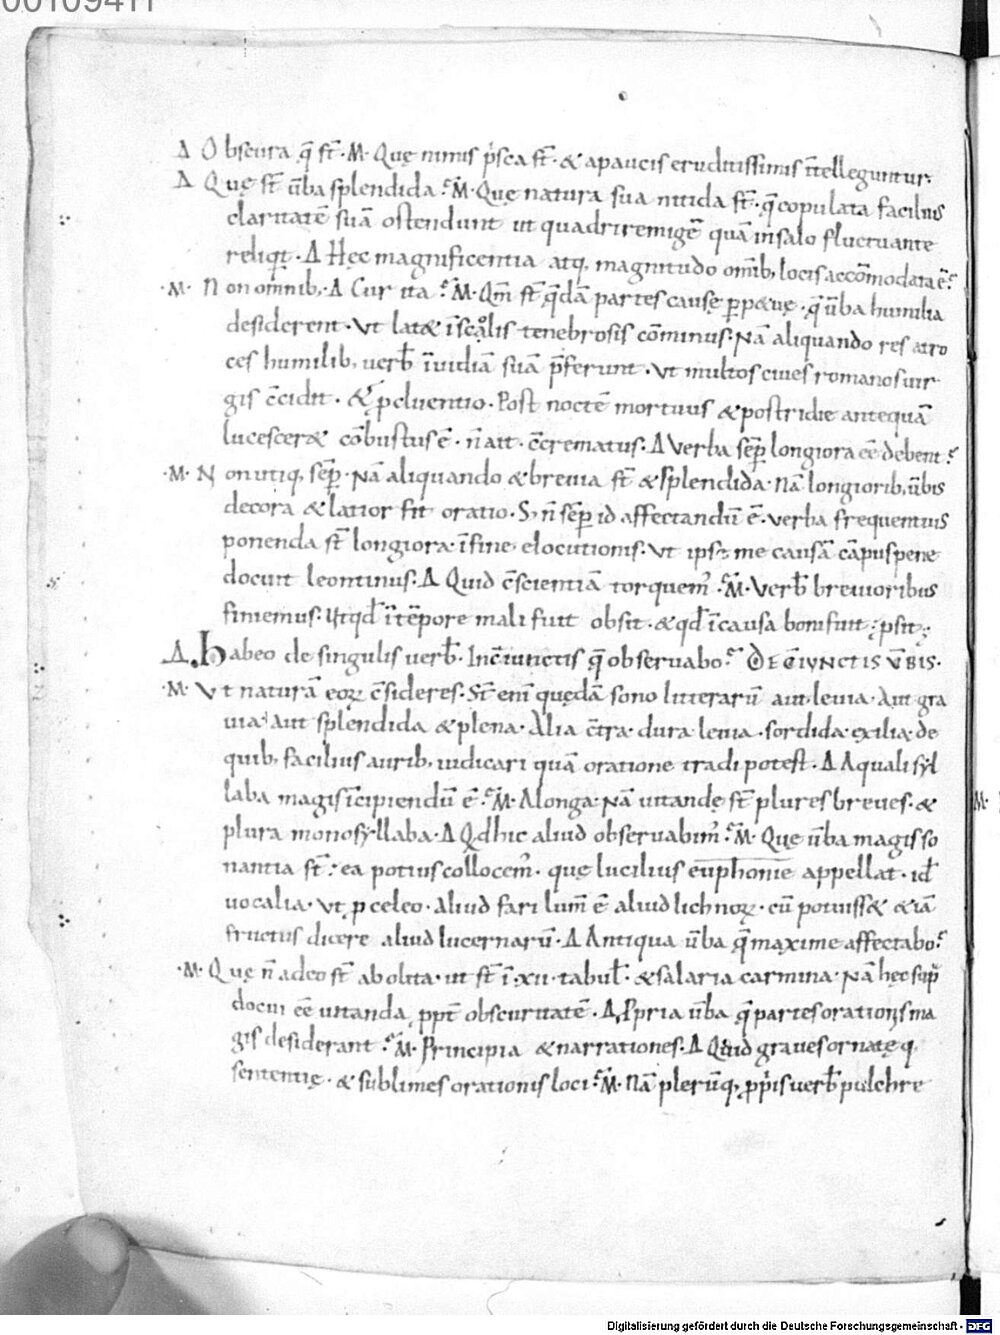 00109411
Δ Obscura q̄ st̄· M· Quę nimis p̓sca st̄· & apaucis eruditissimis ītelleguntur·
Δ Quę st̄ ūba splendida ؟ M· Quę natura sua nitida st̄· q̄ copulata facilius
claritatē suā ostendunt ut quadriremigē quā insalo fluctuante
reliqr̄t· Δ Hęc magnificentia atq, magnitudo om̄ib, locis accōmodata ē؟
·M· Non om̄nib,· Δ Cur ita ؟ M· Qm̄ st̄ q̄dā partes causę ꝑp&uę· q̄ ūba humilia
desiderent· Vt lat& ī scalis tenebrosis cōminus· Nā aliquando res atro
ces humilib, verb̄ īuidiā suā p̄ferunt· Vt multos ciues romanos uir
gis c̄cidit· & p cluentio· Post noctē mortuus & postridie antequā
lucescer& cōbustus ē· n̄ ait· c̄crematus· Δ Verba sēp longiora eē debent؟
·M· Non utiq, sēp· Nā aliquando & breuia st̄ & splendida· Nā longiorib, ūbis
decora & latior fit oratio· S, n̄ sēp id affectandū ē· verba frequentius
ponenda st̄ longiora· ī fine elocutionis· Vt ipse me causā cāpus pene
docuit leontinus· Δ Quid c̄scientiā torquem̓ ؟ M· Verb̄ breuioribus
finiemus· Ut qd̄ ī tēpore mali fuit obsit· & qd̄ ī causa boni fuit· psit;
Δ· Habeo de singulis verb̄· In c̄iunctis q̄ obseruabo ؟ DE C̄IVNCTIS V̄BIS·
·M· Vt naturā eoꝝ c̄sideres· St̄ eni quędā sono litterarū aut leuia· Aut gra
uia· aut splendida & plena· Alia c̄tra· dura leuia· sordida· exilia· de
quib, facilius aurib, iudicari quā oratione tradi potest· Δ A quali syl
laba magis īcipiendū ē ؟ M· A longa· Nā uitandę st̄ plures breues· &
plura monosyllaba· Δ Qd hic aliud obseruabim̓ ؟ M· Quę ūba magis so
nantia st̄· ea potius collocem̓· quę lucilius euphonie appellat· id̄
uocalia· Vt p celeo· aliud fari lum̄ ē aliud lichnoꝝ· cū potuiss& & iā
fructus dicere aliud lucernarū· Δ Antiqua ūba q̄ maxime affectabo؟
·M· Quę n̄ adeo st̄ abolita· ut st̄ ī· xii· tabul̄· & salaria carmina· Nā hęc sup̄
docui eē uitanda ppt̄ obscuritatē· Δ Ppria ūba q̄ partes orationis ma
gis desiderant ؟ M· Principia & narrationes· Δ Quid graues ornatęq,
sententię· & sublimes orationis loci ؟ M· Nā plerūq, pp̓is verb̄ pulchre
M·
Digitalisierung gefördert durch die Deutsche Forschungsgemeinschaft - DFG